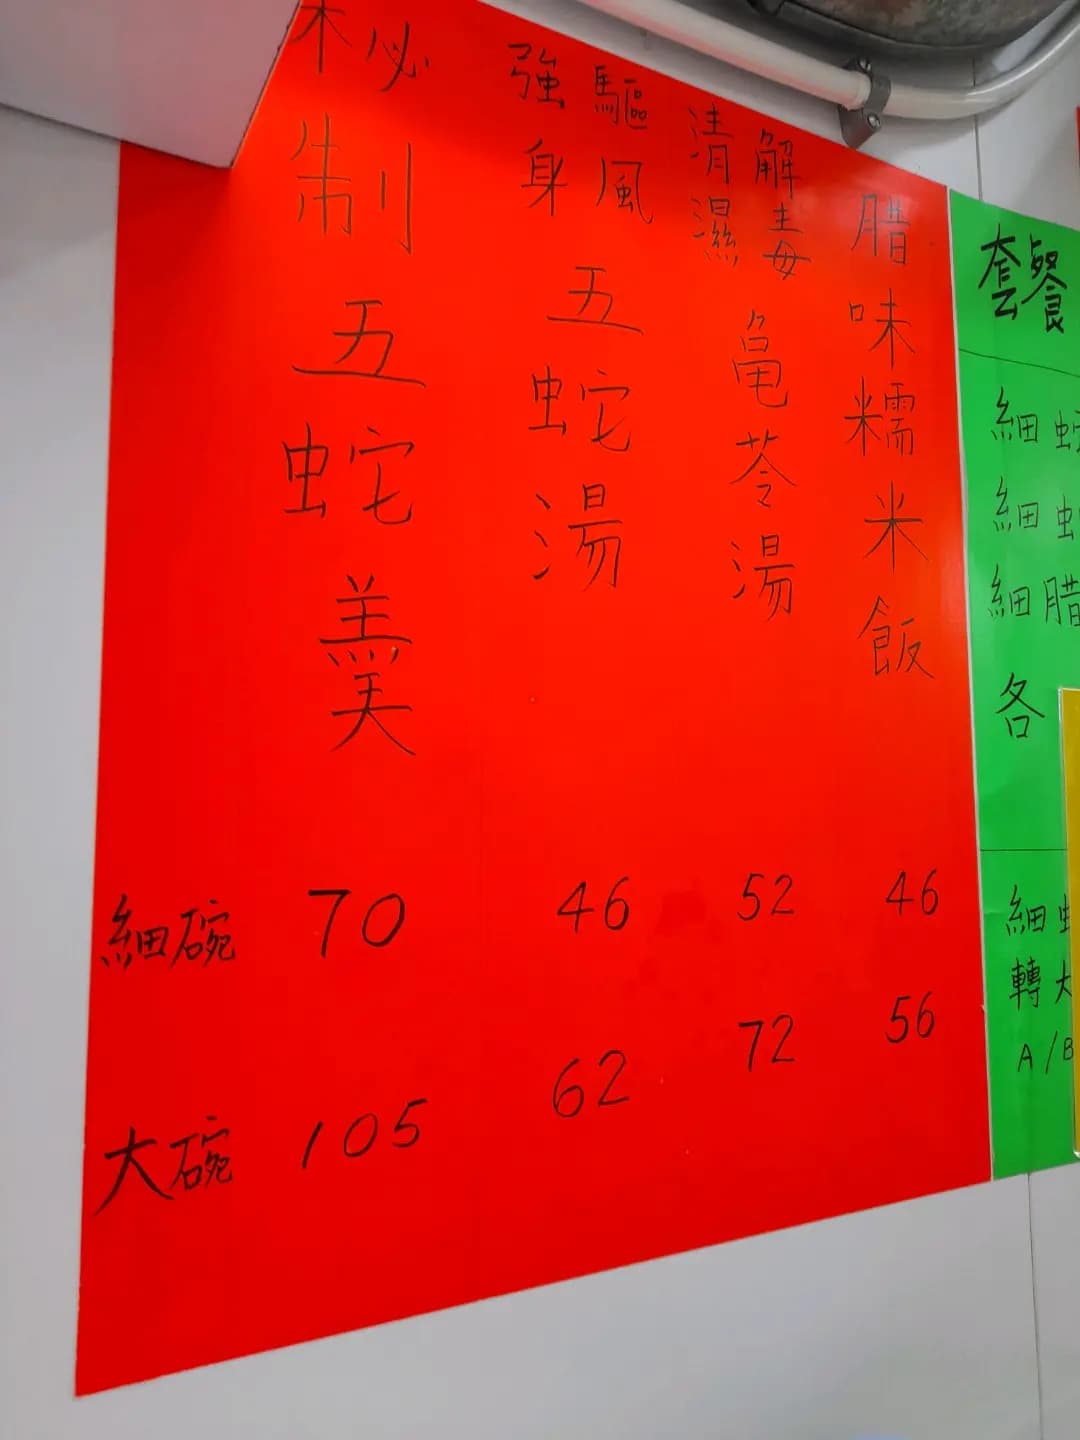 秘制五蛇羹
強身驅風
五蛇湯
清濕解毒
龜苓湯
腊味糯米飯
細碗 70 46 52 46
大碗 105 62 72 56
套餐
細
細
細腊
各
細
轉大
A/B